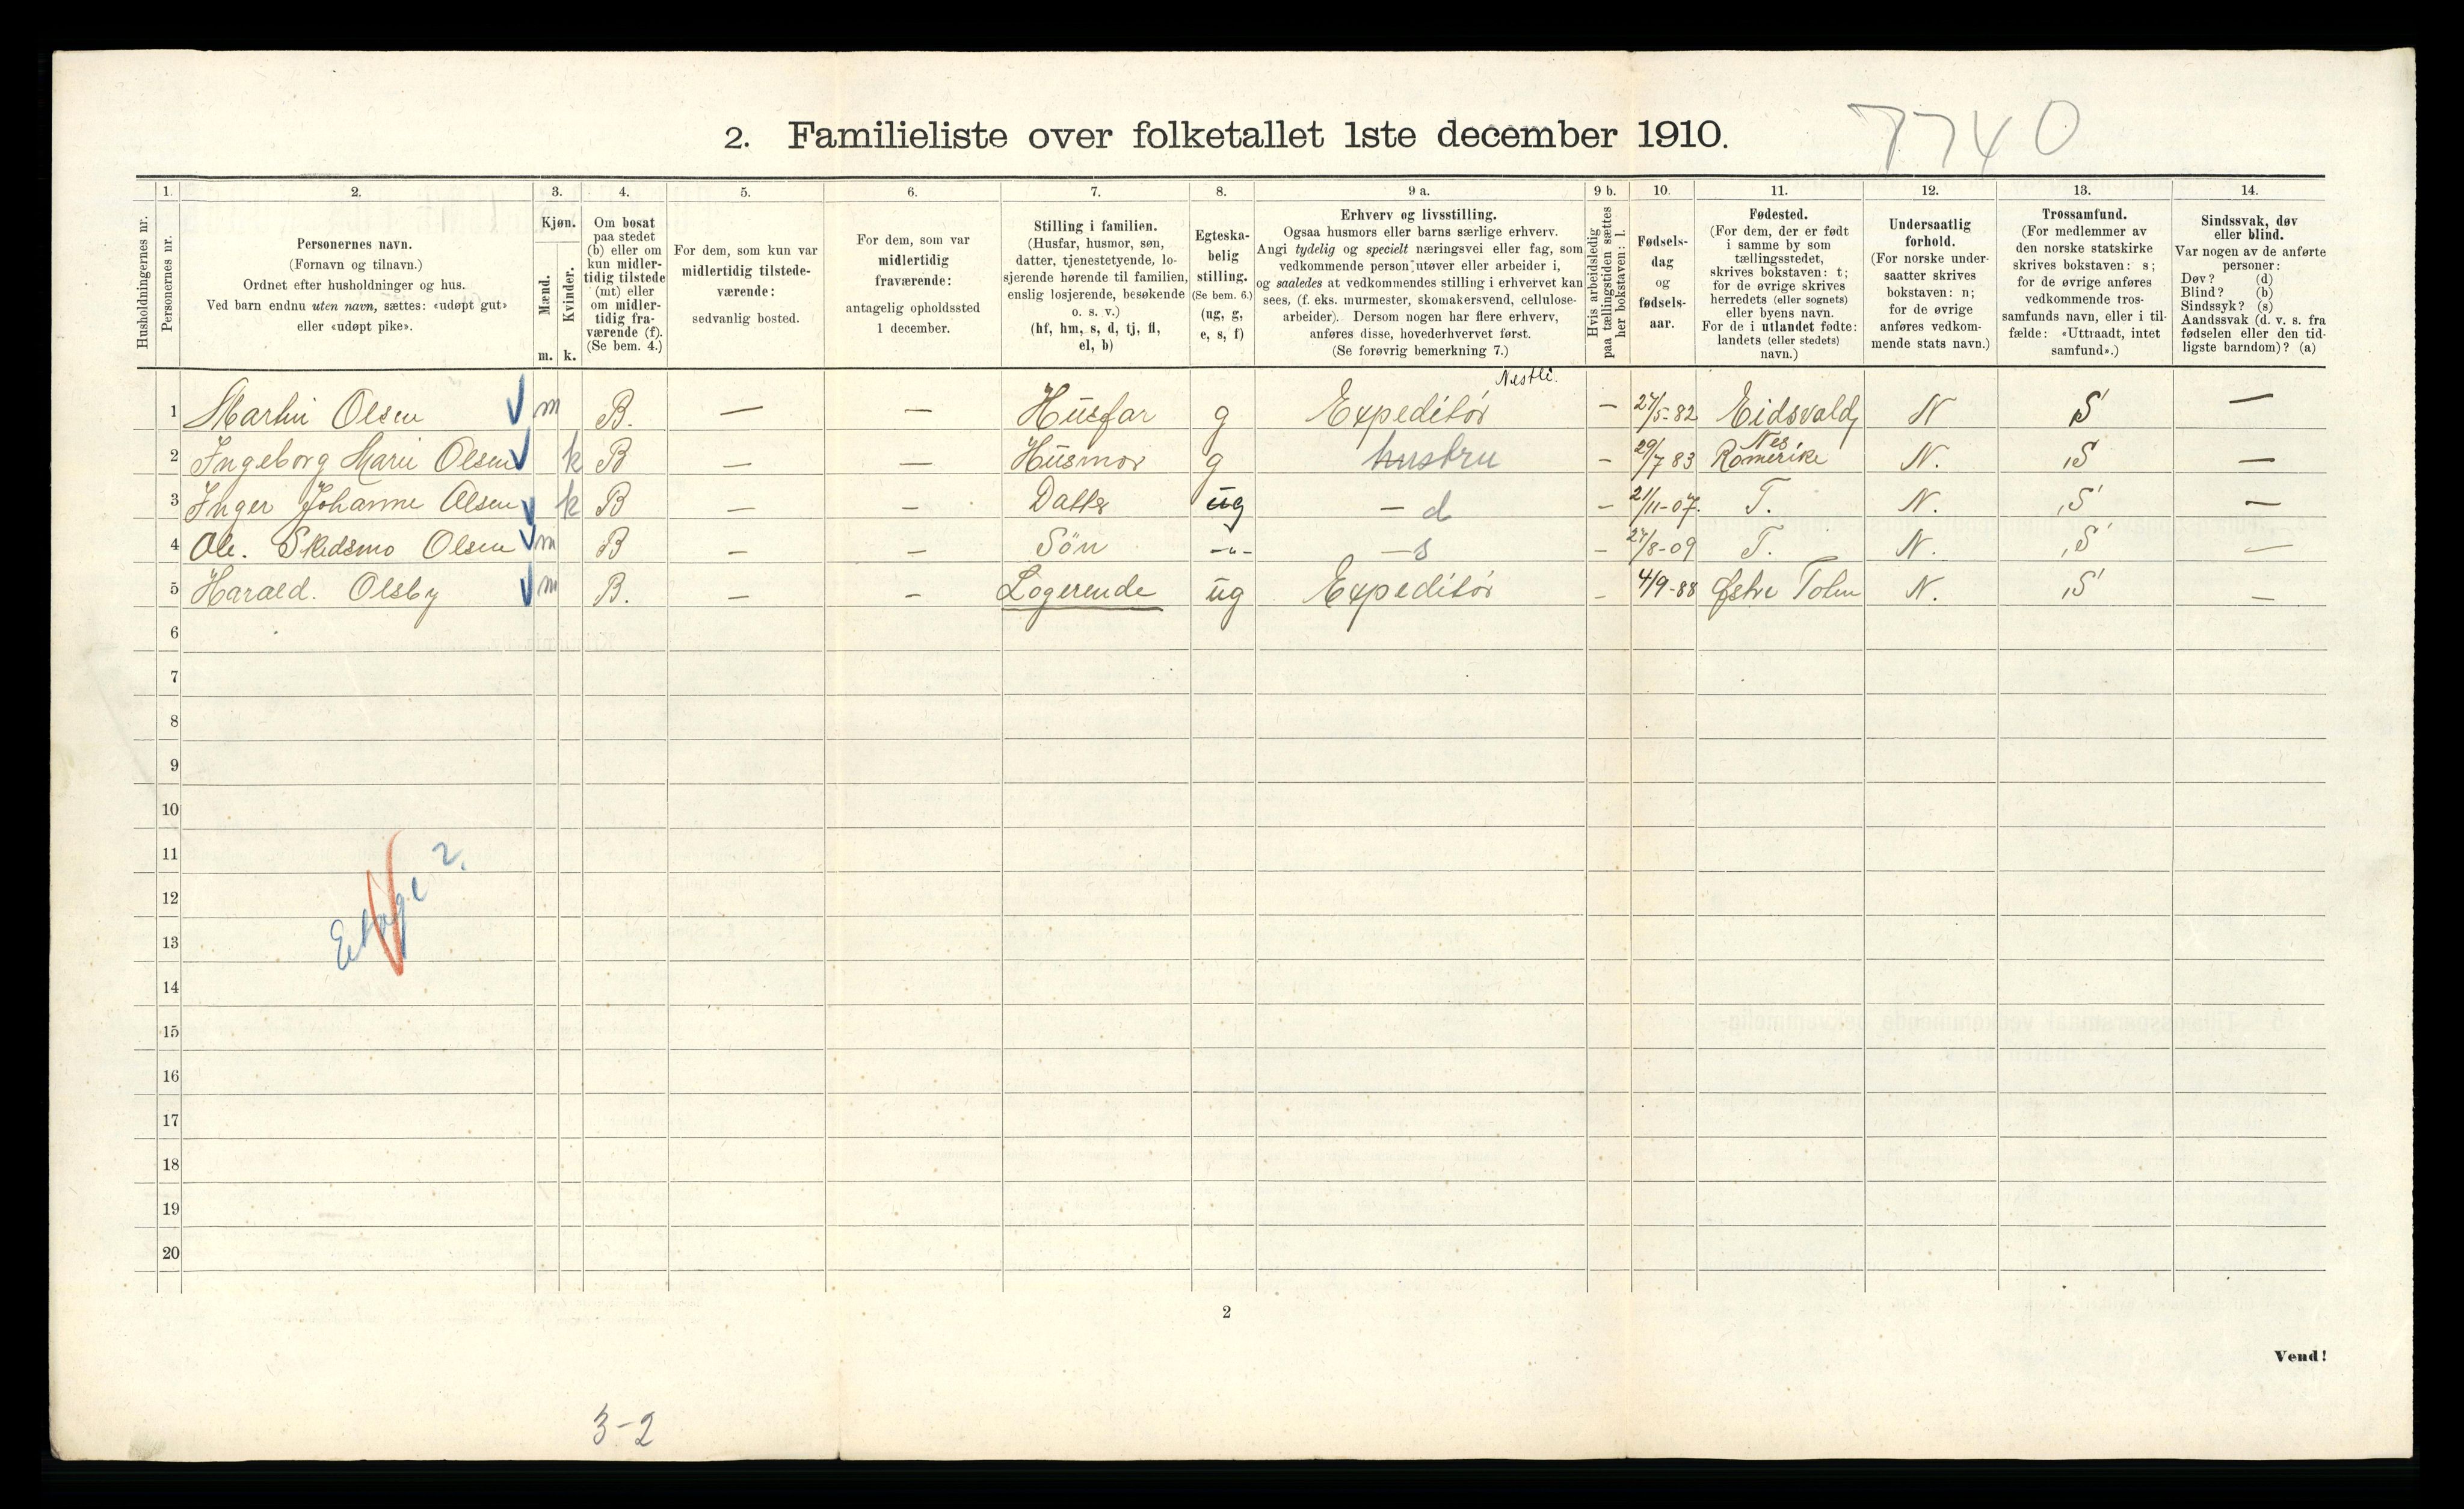 2. Familieliste over folketallet 1ste december 1910.
7740
Husholdningernes nr.
1.
Personernes nr.
2.
Personernes navn.
(Fornavn og tilnavn.)
Ordnet efter husholdninger og hus.
Ved barn endnu uten navn, sættes: «udøpt gut»
eller «udøpt pike».
3.
Kjøn.
Mænd.
Kvinder.
m. k.
4.
Om bosat
paa stedet
(b) eller om
kun midler-
tidig tilstede
(mt) eller
om midler-
tidig fra-
værende (f).
(Se bem. 4.)
5.
For dem, som kun var
midlertidig tilstede-
værende:
sedvanlig bosted.
6.
For dem, som var
midlertidig
fraværende:
antagelig opholdssted
1 december.
7.
Stilling i familien.
(Husfar, husmor, søn,
datter, tjenestetyende, lo-
sjerende hørende til familien,
enslig losjerende, besøkende
o. s. v.)
(hf, hm, s, d, tj, fl,
el, b)
8.
Egteska-
belig
stilling.
(Se bem. 6.)
(ug, g,
e, s, f)
9 a.
Erhverv og livsstilling.
Ogsaa husmors eller barns særlige erhverv.
Angi tydelig og specielt næringsvei eller fag, som
vedkommende person utøver eller arbeider i,
og saaledes at vedkommendes stilling i erhvervet kan
sees, (f. eks. murmester, skomakersvend, cellulose-
arbeider). Dersom nogen har flere erhverv,
anføres disse, hovederhvervet først.
(Se forøvrig bemerkning 7.)
9 b.
Hvis arbeidsledig
paa tællingstiden sættes
her bokstaven: l.
10.
Fødsels-
dag
og
fødsels-
aar.
11.
Fødested.
(For dem, der er født
i samme by som
tællingsstedet,
skrives bokstaven: t;
for de øvrige skrives
herredets (eller sognets)
eller byens navn.
For de i utlandet fødte:
landets (eller stedets)
navn.)
12.
Undersaatlig
forhold.
(For norske under-
saatter skrives
bokstaven: n;
for de øvrige
anføres vedkom-
mende stats navn.)
13.
Trossamfund.
(For medlemmer av
den norske statskirke
skrives bokstaven: s;
for de øvrige anføres
vedkommende tros-
samfunds navn, eller i til-
fælde: «Uttraadt, intet
samfund».)
14.
Sindssvak, døv
eller blind.
Var nogen av de anførte
personer:
Døv? (d)
Blind? (b)
Sindssyk? (s)
Aandssvak (d. v. s. fra
fødselen eller den tid-
ligste barndom)? (a)
1 Martin Olsen m B. — — Husfar g Expeditör – 27/5-82 Eidsvold N S —
2 Ingeborg Marie Olsen k B — — Husmor g hustru – 29/7 83 Nes Romerike N. S —
3 Inger Johanne Olsen k B — — Datter ug — d – 21/11-07. T. N. S —
4 Ole. Skedsmo Olsen m B – – Sön -"- — s – 27/8-09 T. N. S —
5 Harald. Olsby m B. – – Logerende ug Expeditör – 4/9-88 Østre Toten N. S —
6
7
8
9
10
11
12
13
14
15
16
17
18
19
20
Etage 2.
2
Vend!
3-2